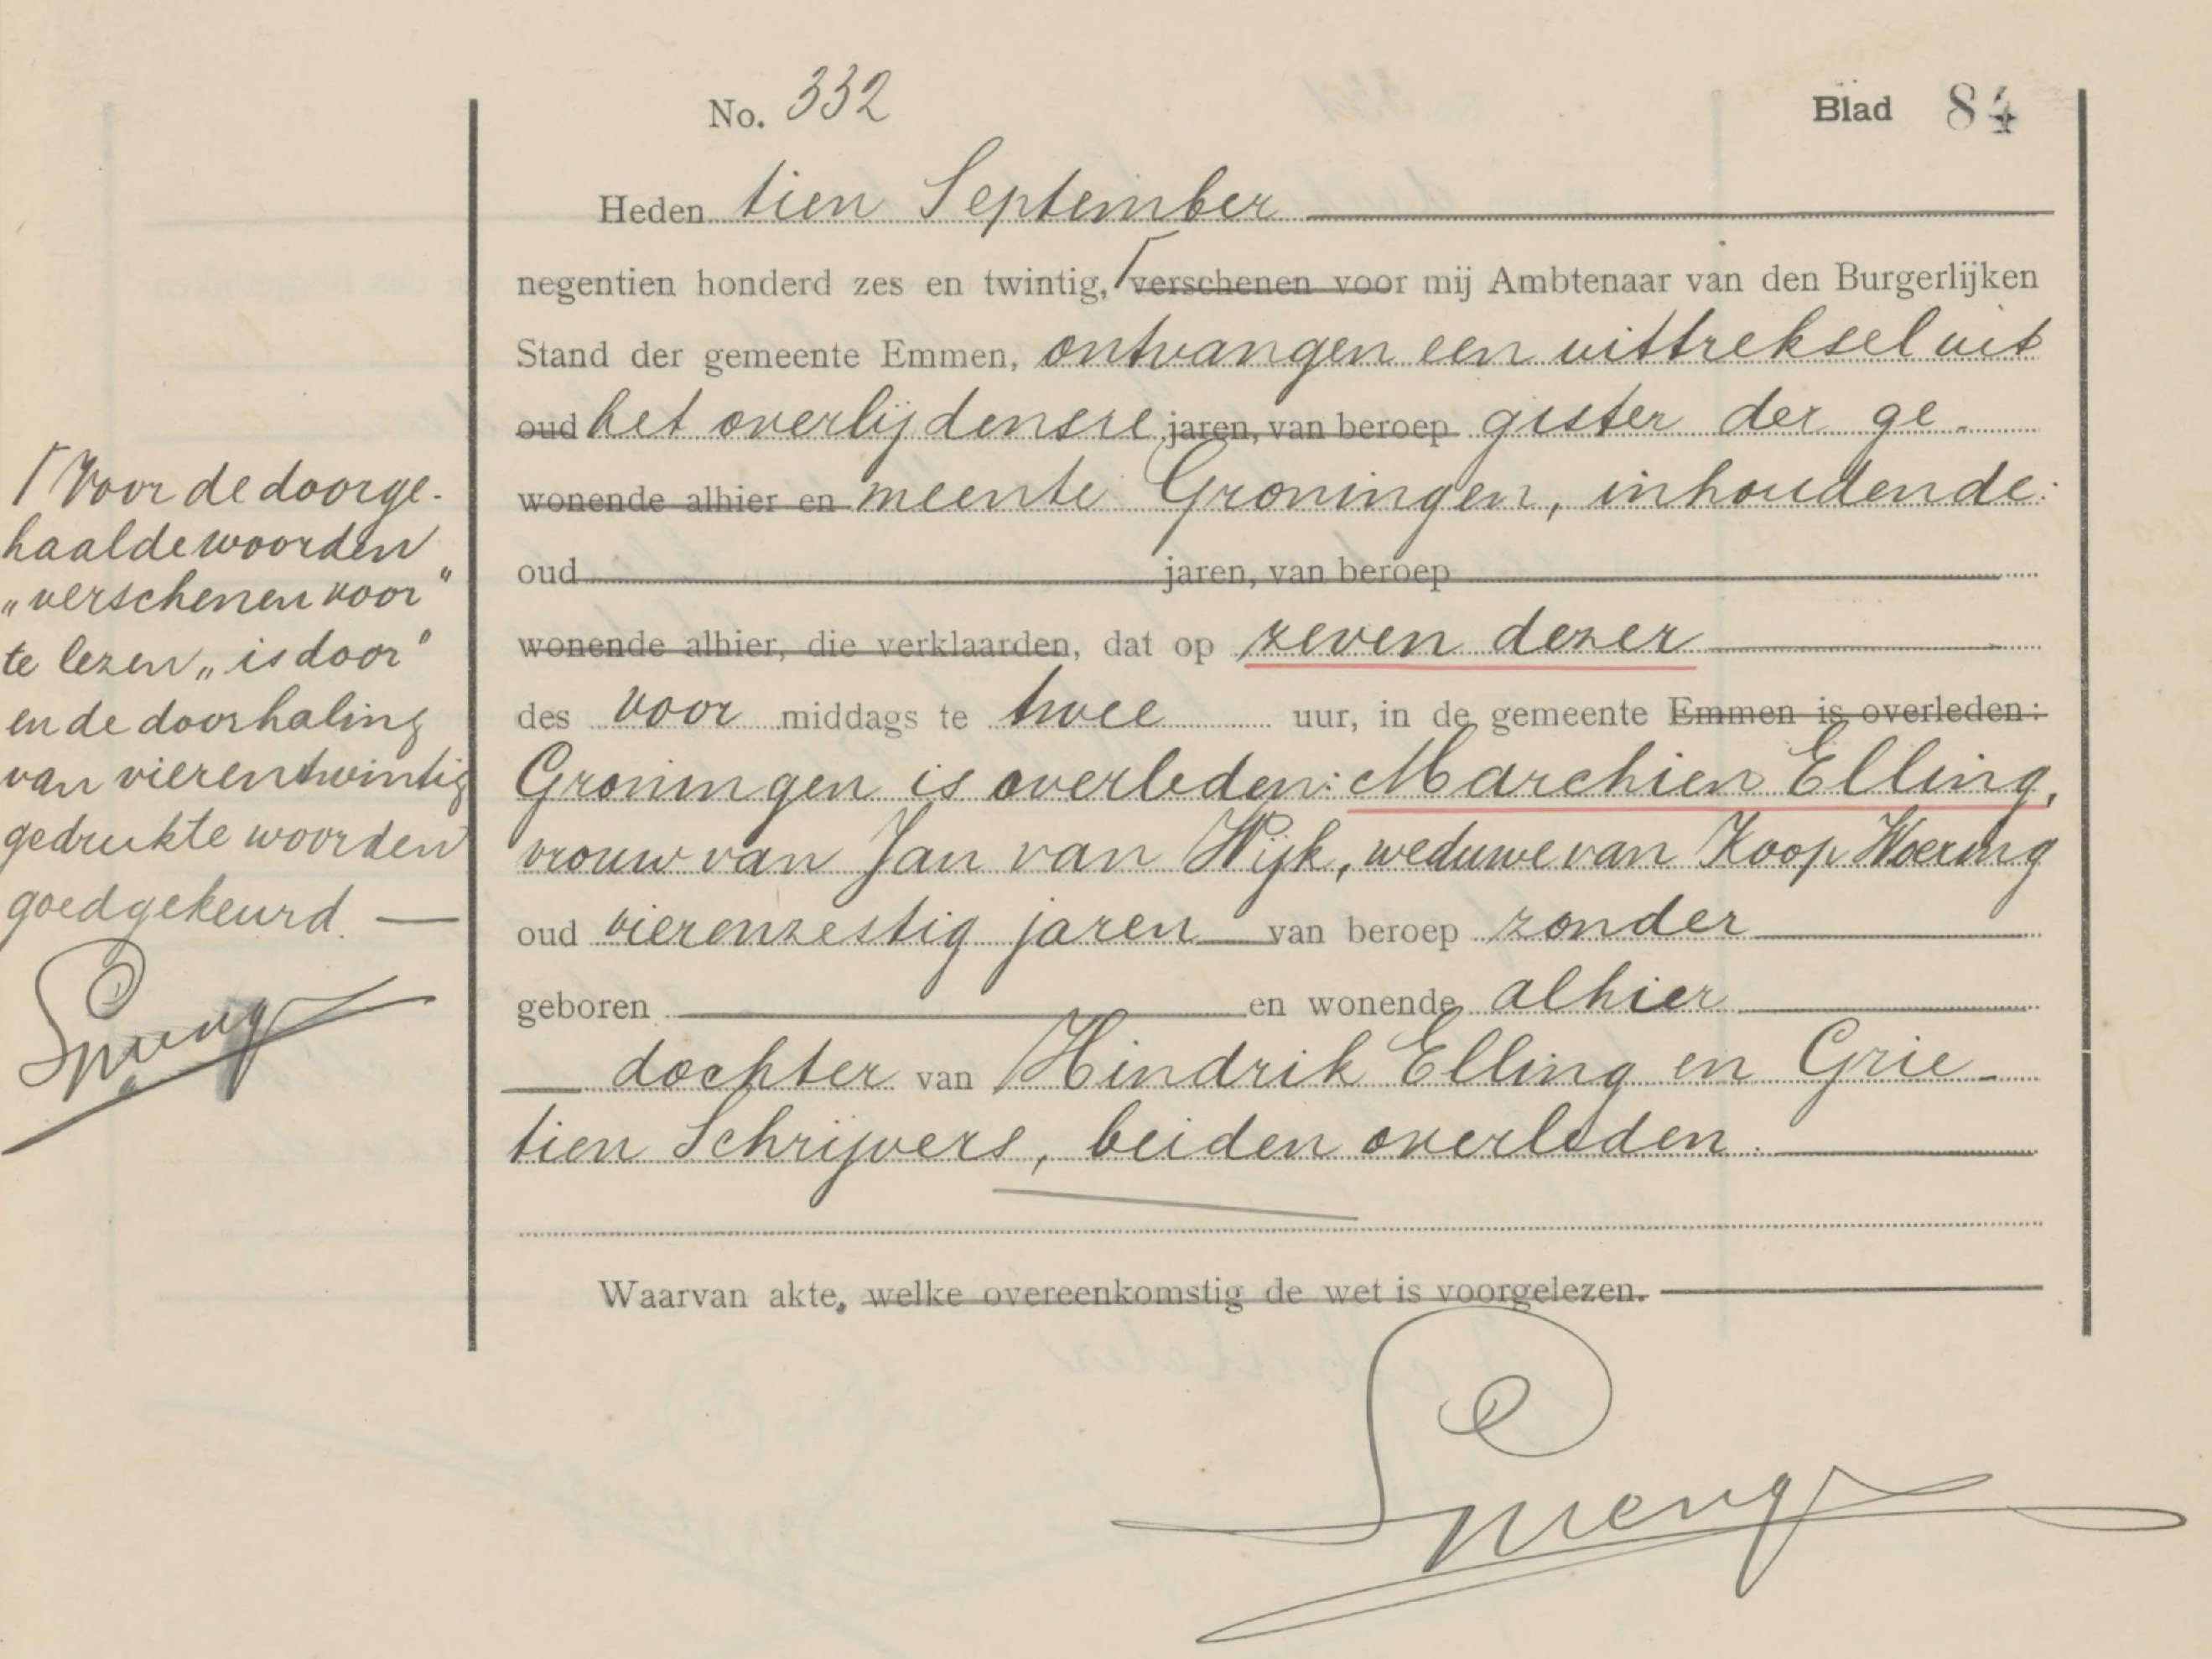 No. 332
Blad 84
Heden tien September
negentien honderd zes en twintig, ⌈verschenen voor mij Ambtenaar van den Burgerlijken
Stand der gemeente Emmen, ontvangen een uittreksel uit
oud het overlijdensre jaren, van beroep gister der ge-
wonende alhier en meente Groningen, inhoudende:
oud jaren, van beroep
wonende alhier, die verklaarden, dat op zeven dezer
des voor middags te twee uur, in de gemeente Emmen is overleden:
Groningen is overleden: Marchien Elling,
vrouw van Jan van Wijk, weduwe van Koop Woering
oud vierenzestig jaren van beroep zonder
geboren en wonende alhier
dochter van Hindrik Elling en Grie-
tien Schrijvers, beiden overleden.
Waarvan akte, welke overeenkomstig de wet is voorgelezen.
⌈Voor de doorge-
haalde woorden
„verschenen voor"
te lezen „is door"
en de doorhaling
van vierentwintig
gedrukte woorden
goedgekeurd.